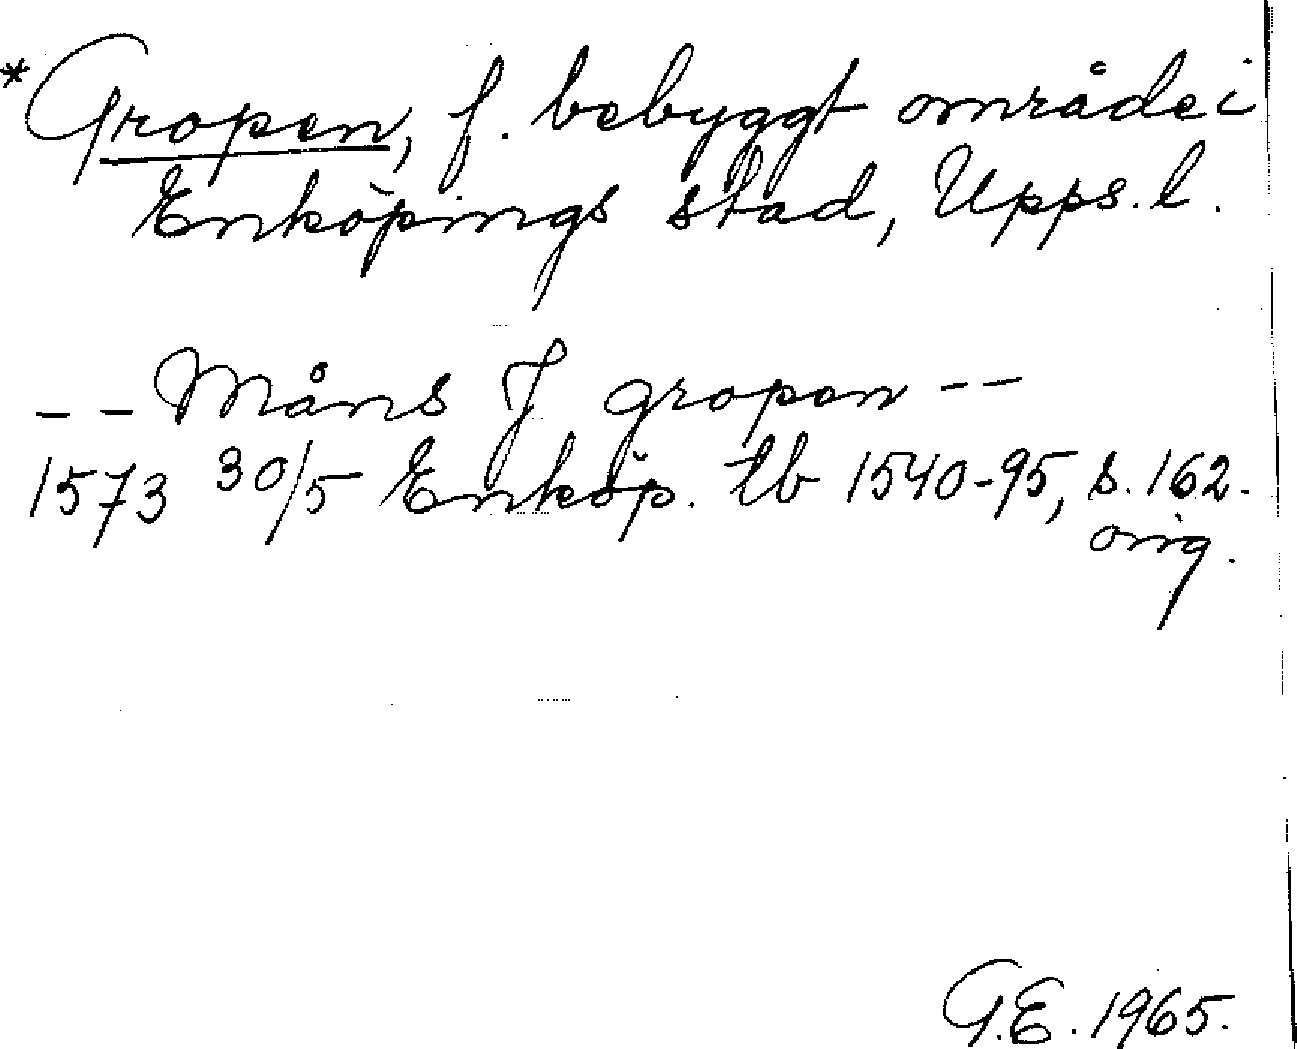 *Gropen, f. bebyggt område i
Enköpings stad, Upps. l.
-- Måns J gropen --
1573 30/5 Enköp. tb 1540-95, s. 162.
orig.
G.E. 1965.